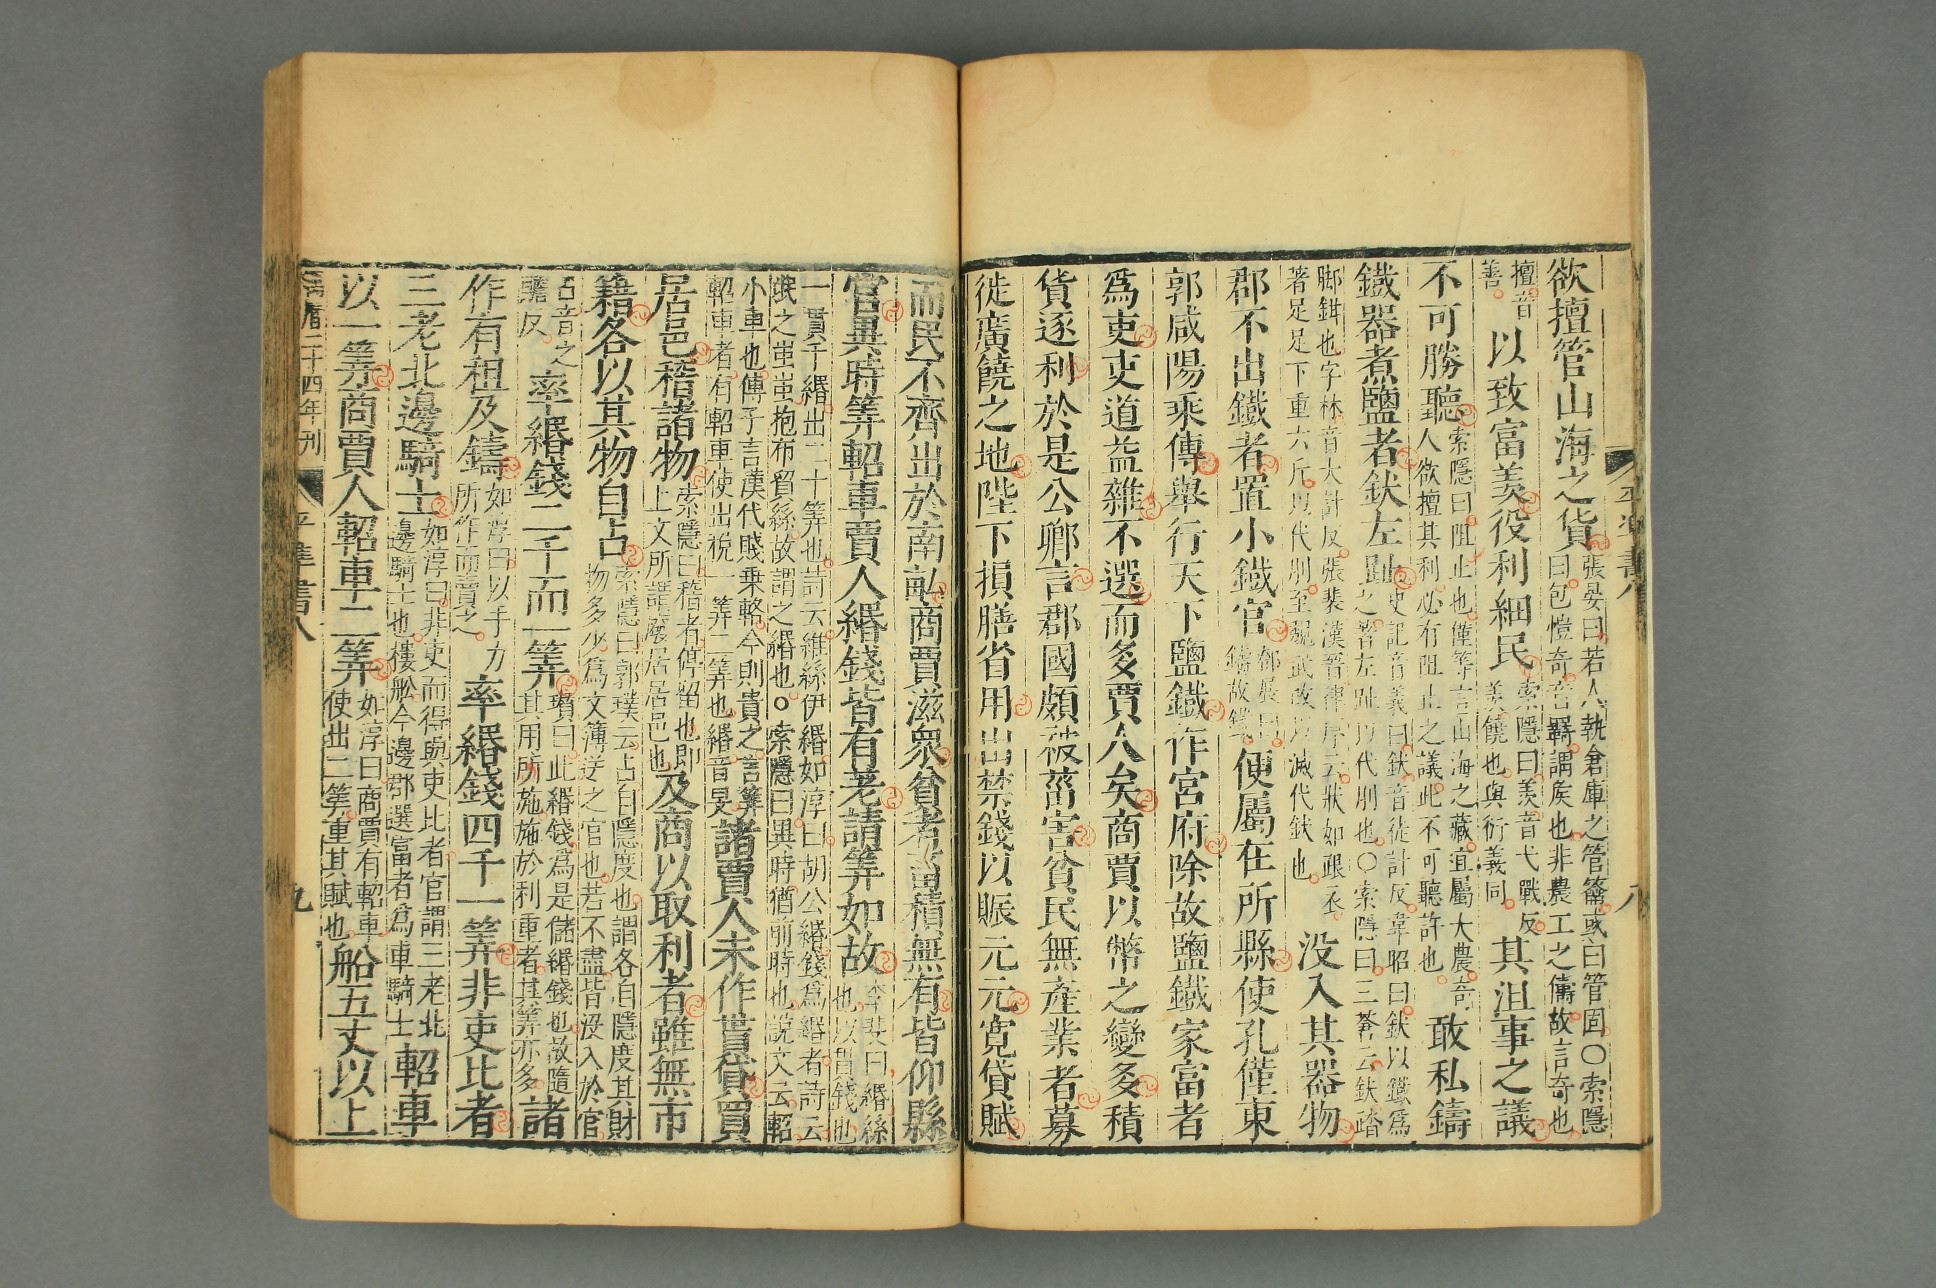 欲擅管山海之貨張晏曰若人執倉庫之管籥或曰管固〇索隱曰包愷奇音羇謂矦也非農工之儔故言奇也
擅音善以致富羙役利細民索隱曰羙音弋戰反羙饒也與衍義同其沮事之議
不可勝聽索隱曰阻止也僅等言山海之藏宜屬大農奇人欲擅其利必有阻止之議此不可聽許也敢私鑄
鐵器煮鹽者釱左趾史記音義曰釱音徒計反韋昭曰釱以鐵爲之著左趾以代刖也〇索隱曰三蒼云釱踏
脚鉗也字林音大計反張裴漢晉律序云狀如跟衣著足足下重六斤以代刖至魏武改以減代釱也没入其器物
郡不出鐵者置小鐵官鄧展曰鑄故鐵便屬在所縣使孔僅東
郭咸陽乘傳舉行天下鹽鐵作官府除故鹽鐵家富者
爲吏吏道益雜不選而多賈人矣商賈以幣之變多積
貨逐利於是公卿言郡國頗被菑害貧民無產業者募
徙廣饒之地陛下損膳省用出禁錢以賑元元寛貸賦
平準書八
八
而民不齊出於南畝商賈滋衆貧者畜積無有皆仰縣
官異時筭軺車賈人緡錢皆有差請筭如故李斐曰緡絲也以貫錢也
一貫千緡出二十筭也詩云維絲伊緡如淳曰胡公緡錢爲緡者詩云氓之蚩蚩抱布貿絲故謂之緡也〇索隱曰異時猶前時也說文云軺
小車也傅子言漢代賤乗軺今則貴之言筭軺車者有軺車使出稅一筭二筭也緡音旻諸賈人未作貰貸買
居邑稽諸物索隱曰稽者停留也即上文所謂廢居居邑也及商以取利者雖無市
籍各以其物自占索隱曰郭璞云占自隱度也謂各自隱度其財物多少爲文簿送之官也若不盡皆没入於官
占音之贍反率緡錢二千而一筭瓚曰此緡錢爲是儲緡錢也故隨其用所施施於利重者其筭亦多諸
作有租及鑄如淳曰以手力所作而賣之率緡錢四千一筭非吏比者
三老北邊騎士如淳曰非吏而得與吏比者官謂三老北邊騎士也樓舩令邊郡選富者爲車騎士軺車
以一筭商賈人軺車二筭如淳曰商賈有軺車使出二筭重其賦也船五丈以上
萬曆二十四年刊
平準書八
九